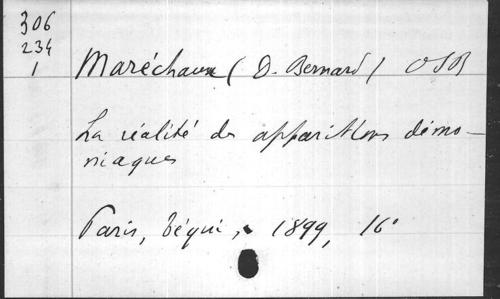 306
234
1
Maréchaux (D. Bernard) OSB
La réalité des apparitions démo-
niaques
Paris, Téqui, 1899, 16°